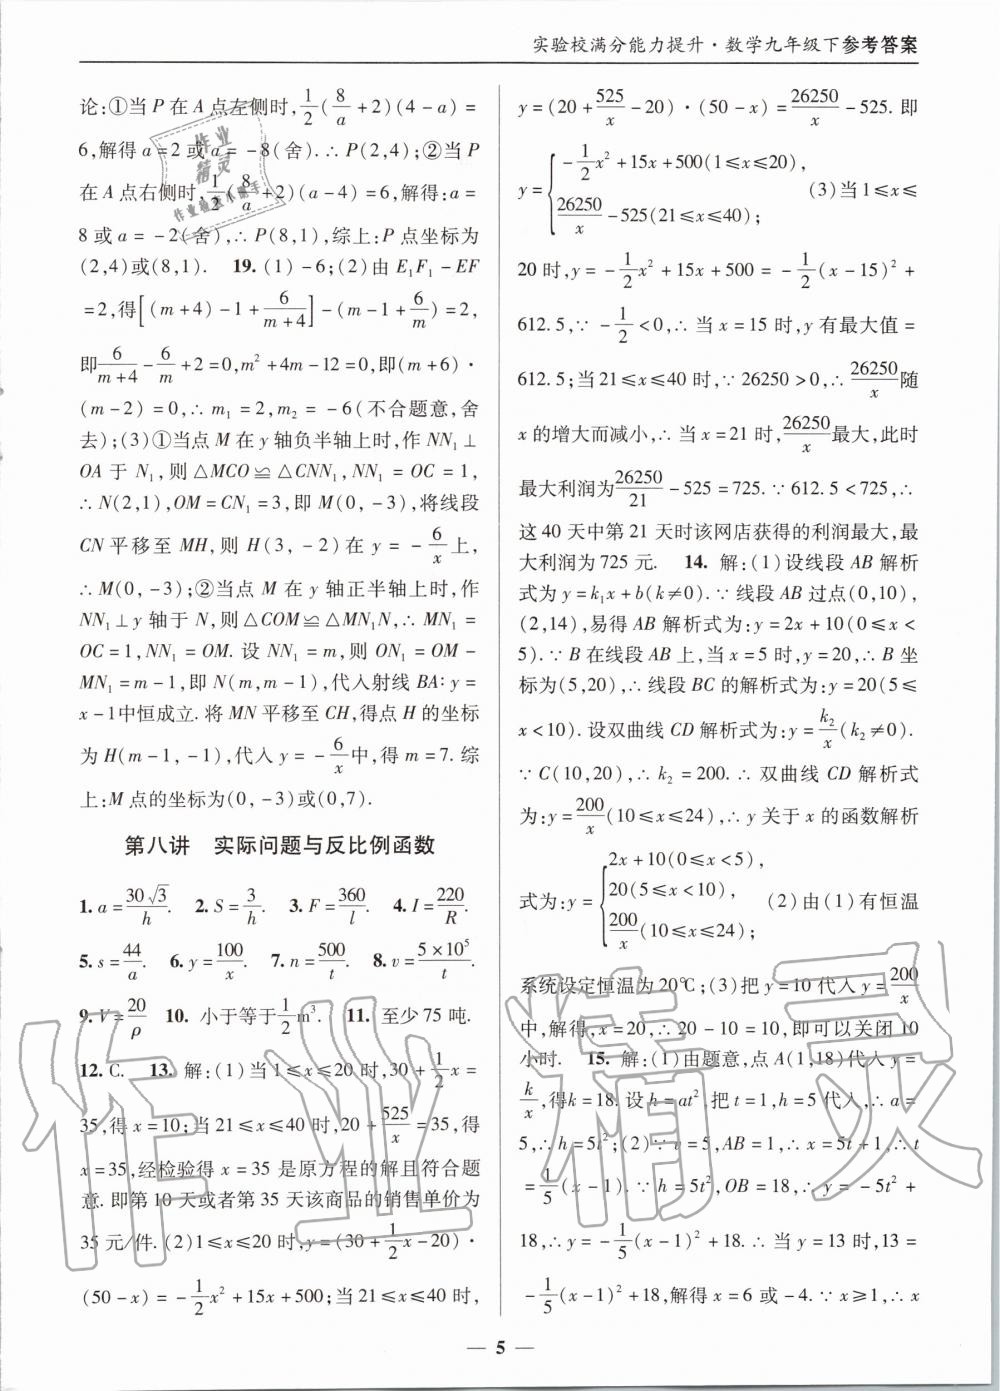 实验校满分能力提升·数学九年级下参考答案
论:①当 P 在 A 点左侧时,1/2(8/a+2)(4-a)=
6,解得 a=2 或 a=-8(舍).∴P(2,4);②当 P
在 A 点右侧时,1/2(8/a+2)(a-4)=6,解得:a=
8 或 a=-2(舍),∴P(8,1),综上:P 点坐标为
(2,4)或(8,1). 19. (1)-6;(2)由 E₁F₁-EF
=2,得[(m+4)-1+6/(m+4)]-(m-1+6/m)=2,
即6/(m+4)-6/m+2=0,m²+4m-12=0,即(m+6)·
(m-2)=0,∴m₁=2,m₂=-6(不合题意,舍
去);(3)①当点 M 在 y 轴负半轴上时,作 NN₁⊥
OA 于 N₁,则△MCO≌△CNN₁,NN₁=OC=1,
∴N(2,1),OM=CN₁=3,即 M(0,-3),将线段
CN 平移至 MH,则 H(3,-2)在 y=-6/x上,
∴M(0,-3);②当点 M 在 y 轴正半轴上时,作
NN₁⊥y 轴于 N,则△COM≌△MN₁N,∴MN₁=
OC=1,NN₁=OM. 设 NN₁=m,则 ON₁=OM-
MN₁=m-1,即 N(m,m-1),代入射线 BA:y=
x-1中恒成立. 将 MN 平移至 CH,得点 H 的坐标
为 H(m-1,-1),代入 y=-6/x中,得 m=7. 综
上:M 点的坐标为(0,-3)或(0,7).
第八讲 实际问题与反比例函数
1. a=30√3/h. 2. S=3/h. 3. F=360/l. 4. I=220/R.
5. s=44/a. 6. y=100/x. 7. n=500/t. 8. v=5×10⁵/t.
9. V=20/ρ 10. 小于等于1/2m³. 11. 至少 75 吨.
12. C. 13. 解:(1)当 1≤x≤20 时,30+1/2x=
35,得 x=10;当 21≤x≤40 时,20+525/x=35,得
x=35,经检验得 x=35 是原方程的解且符合题
意. 即第 10 天或者第 35 天该商品的销售单价为
35 元/件. (2)1≤x≤20 时,y=(30+1/2x-20)·
(50-x)=-1/2x²+15x+500;当 21≤x≤40 时,
y=(20+525/x-20)·(50-x)=26250/x-525. 即
y={-1/2x²+15x+500(1≤x≤20),
26250/x-525(21≤x≤40); (3)当 1≤x≤
20 时,y=-1/2x²+15x+500=-1/2(x-15)²+
612.5,∵-1/2<0,∴当 x=15 时,y 有最大值=
612.5;当 21≤x≤40 时,∵26250>0,∴26250/x随
x 的增大而减小,∴当 x=21 时,26250/x最大,此时
最大利润为26250/21-525=725. ∵612.5<725,∴
这 40 天中第 21 天时该网店获得的利润最大,最
大利润为 725 元. 14. 解:(1)设线段 AB 解析
式为 y=k₁x+b(k≠0). ∵线段 AB 过点(0,10),
(2,14),易得 AB 解析式为:y=2x+10(0≤x<
5). ∵B 在线段 AB 上,当 x=5 时,y=20,∴B 坐
标为(5,20),∴线段 BC 的解析式为:y=20(5≤
x<10). 设双曲线 CD 解析式为:y=k₂/x(k₂≠0).
∵C(10,20),∴k₂=200. ∴双曲线 CD 解析式
为:y=200/x(10≤x≤24),∴y 关于 x 的函数解析
式为:y={2x+10(0≤x<5),
20(5≤x<10),
200/x(10≤x≤24); (2)由(1)有恒温
系统设定恒温为 20℃;(3)把 y=10 代入 y=200/x
中,解得,x=20,∴20-10=10,即可以关闭 10
小时. 15. 解:(1)由题意,点 A(1,18)代入 y=
k/x,得k=18. 设 h=at²,把 t=1,h=5 代入,∴a=
5,∴h=5t²;(2)∵v=5,AB=1,∴x=5t+1,∴t
=1/5(x-1). ∵h=5t²,OB=18,∴y=-5t²+
18,∴y=-1/5(x-1)²+18. ∴当 y=13 时,13=
-1/5(x-1)²+18,解得 x=6 或 -4. ∵x≥1,∴x
— 5 —
作业精灵
作业
精灵